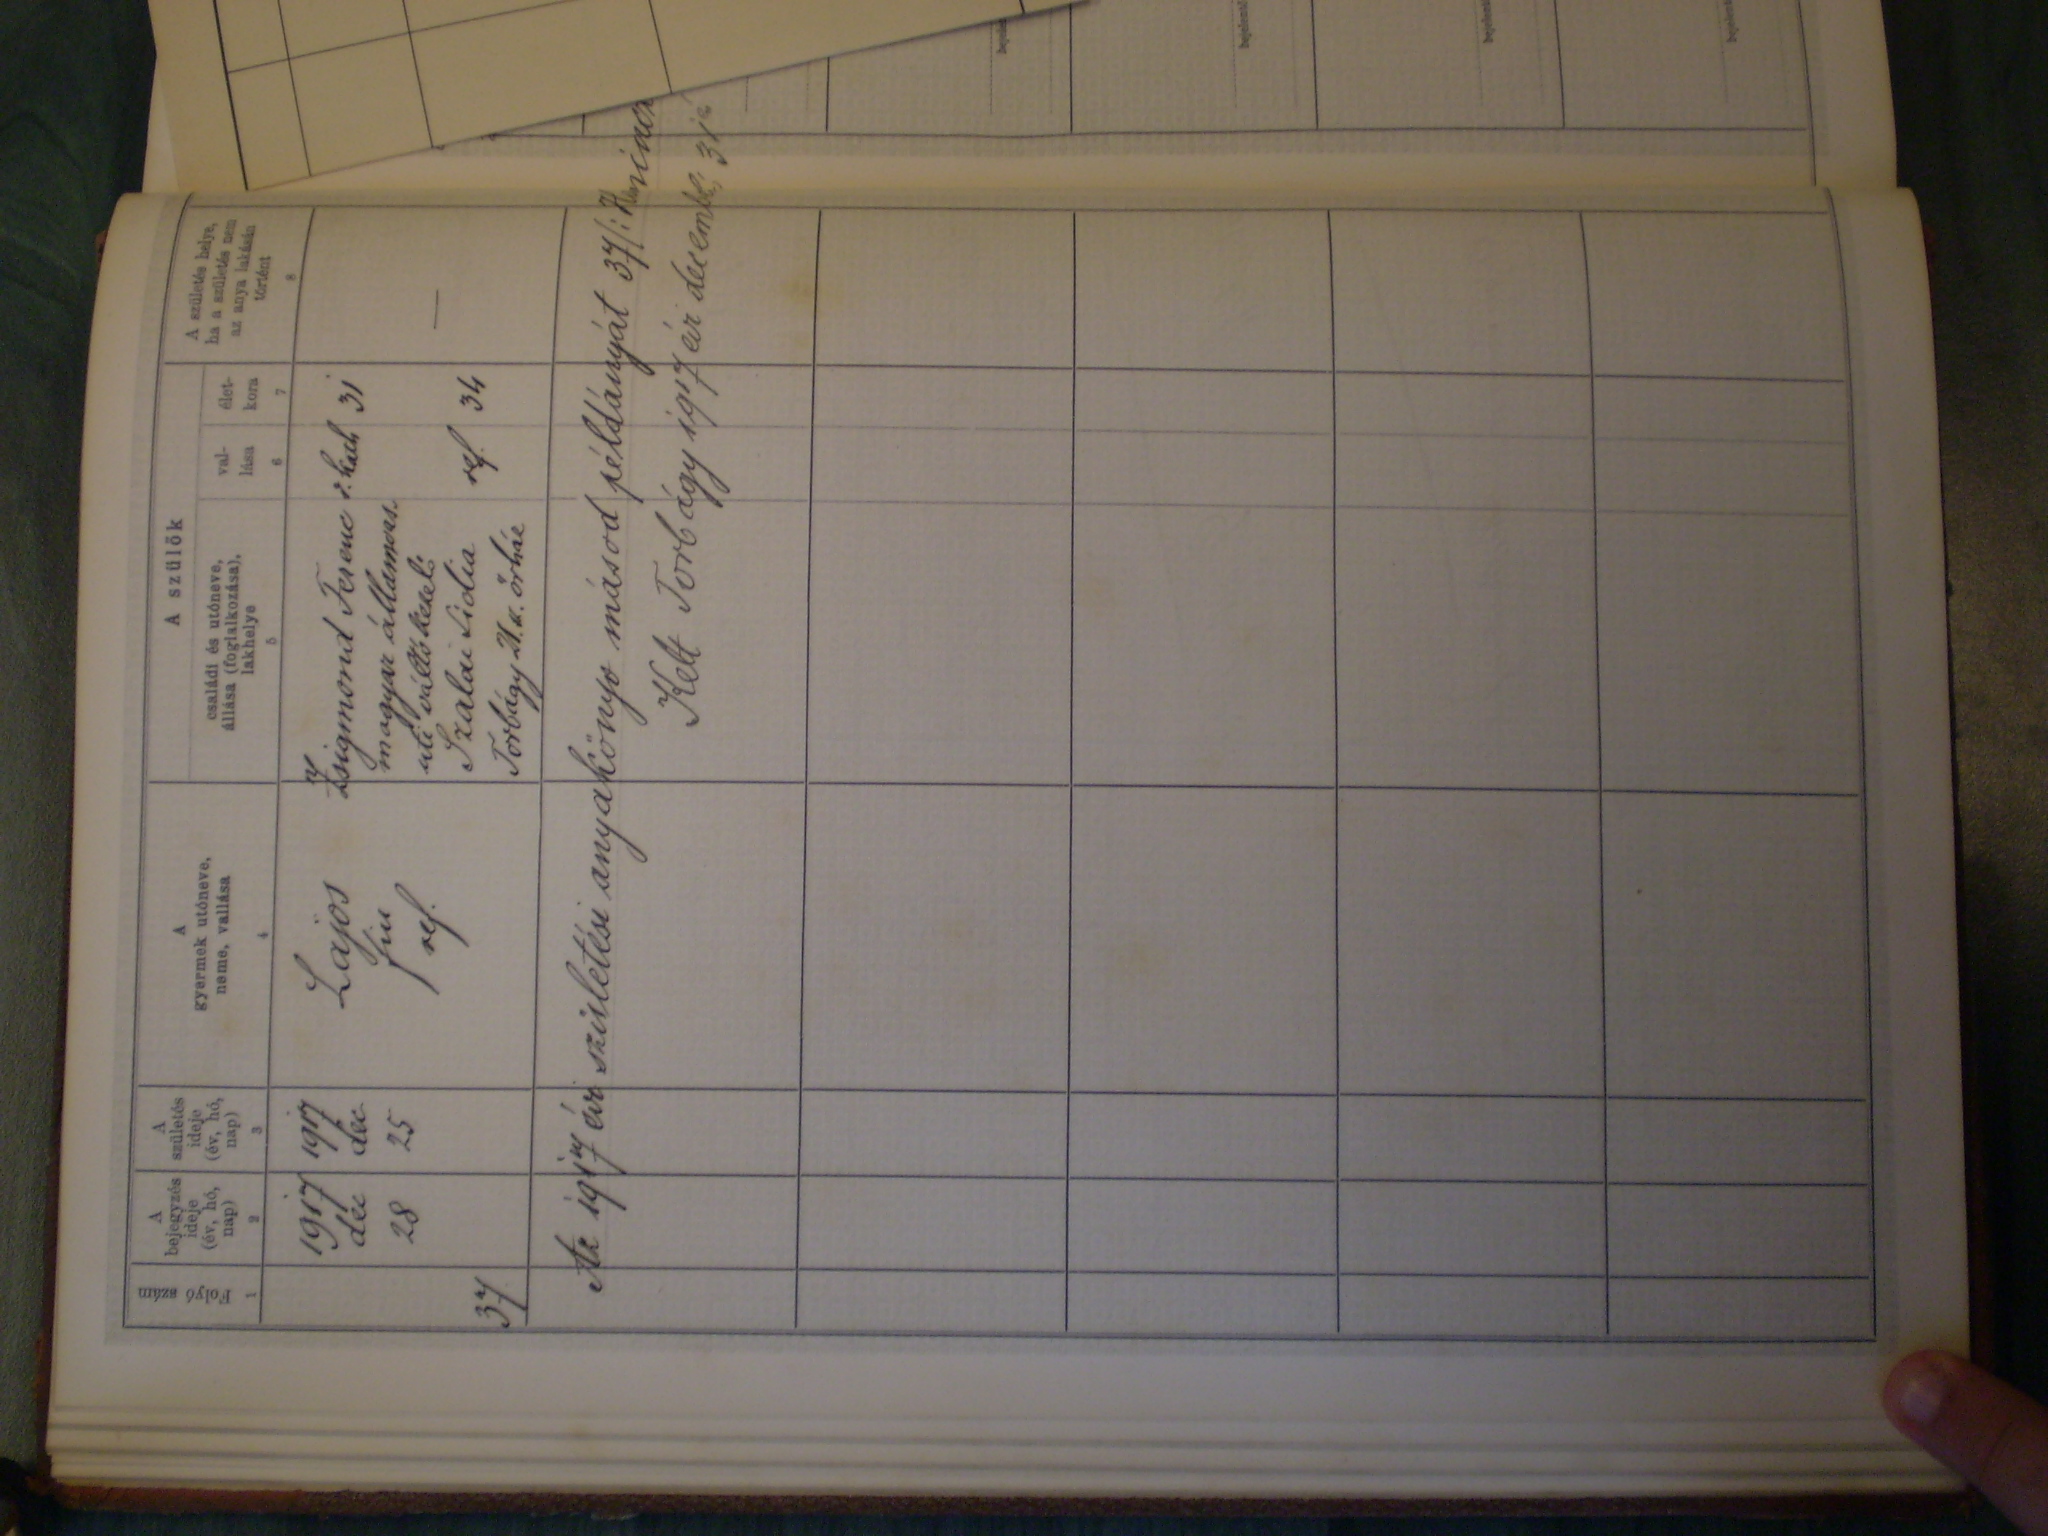 Folyó szám
1
A
bejegyzés
ideje
(év, hó,
nap)
2
A
születés
ideje
(év, hó,
nap)
3
A
gyermek utóneve,
neme, vallása
4
A szülők
családi és utóneve,
állása (foglalkozása),
lakhelye
5
val-
lása
6
élet-
kora
7
A születés helye,
ha a születés nem
az anya lakásán
történt
8
37
1917
dec
28
1917
dec.
25
Lajos
fiu
ref.
Zsigmond Ferenc
magyar államvas.
uti váltókezelő
Szalai Lidia
Torbágy 21. sz. őrház
r. kath
31
ref.
34
—
Az 1917 évi születési anyakönyv másod példányát 37/:
Kelt Torbágy 1917 évi december 31